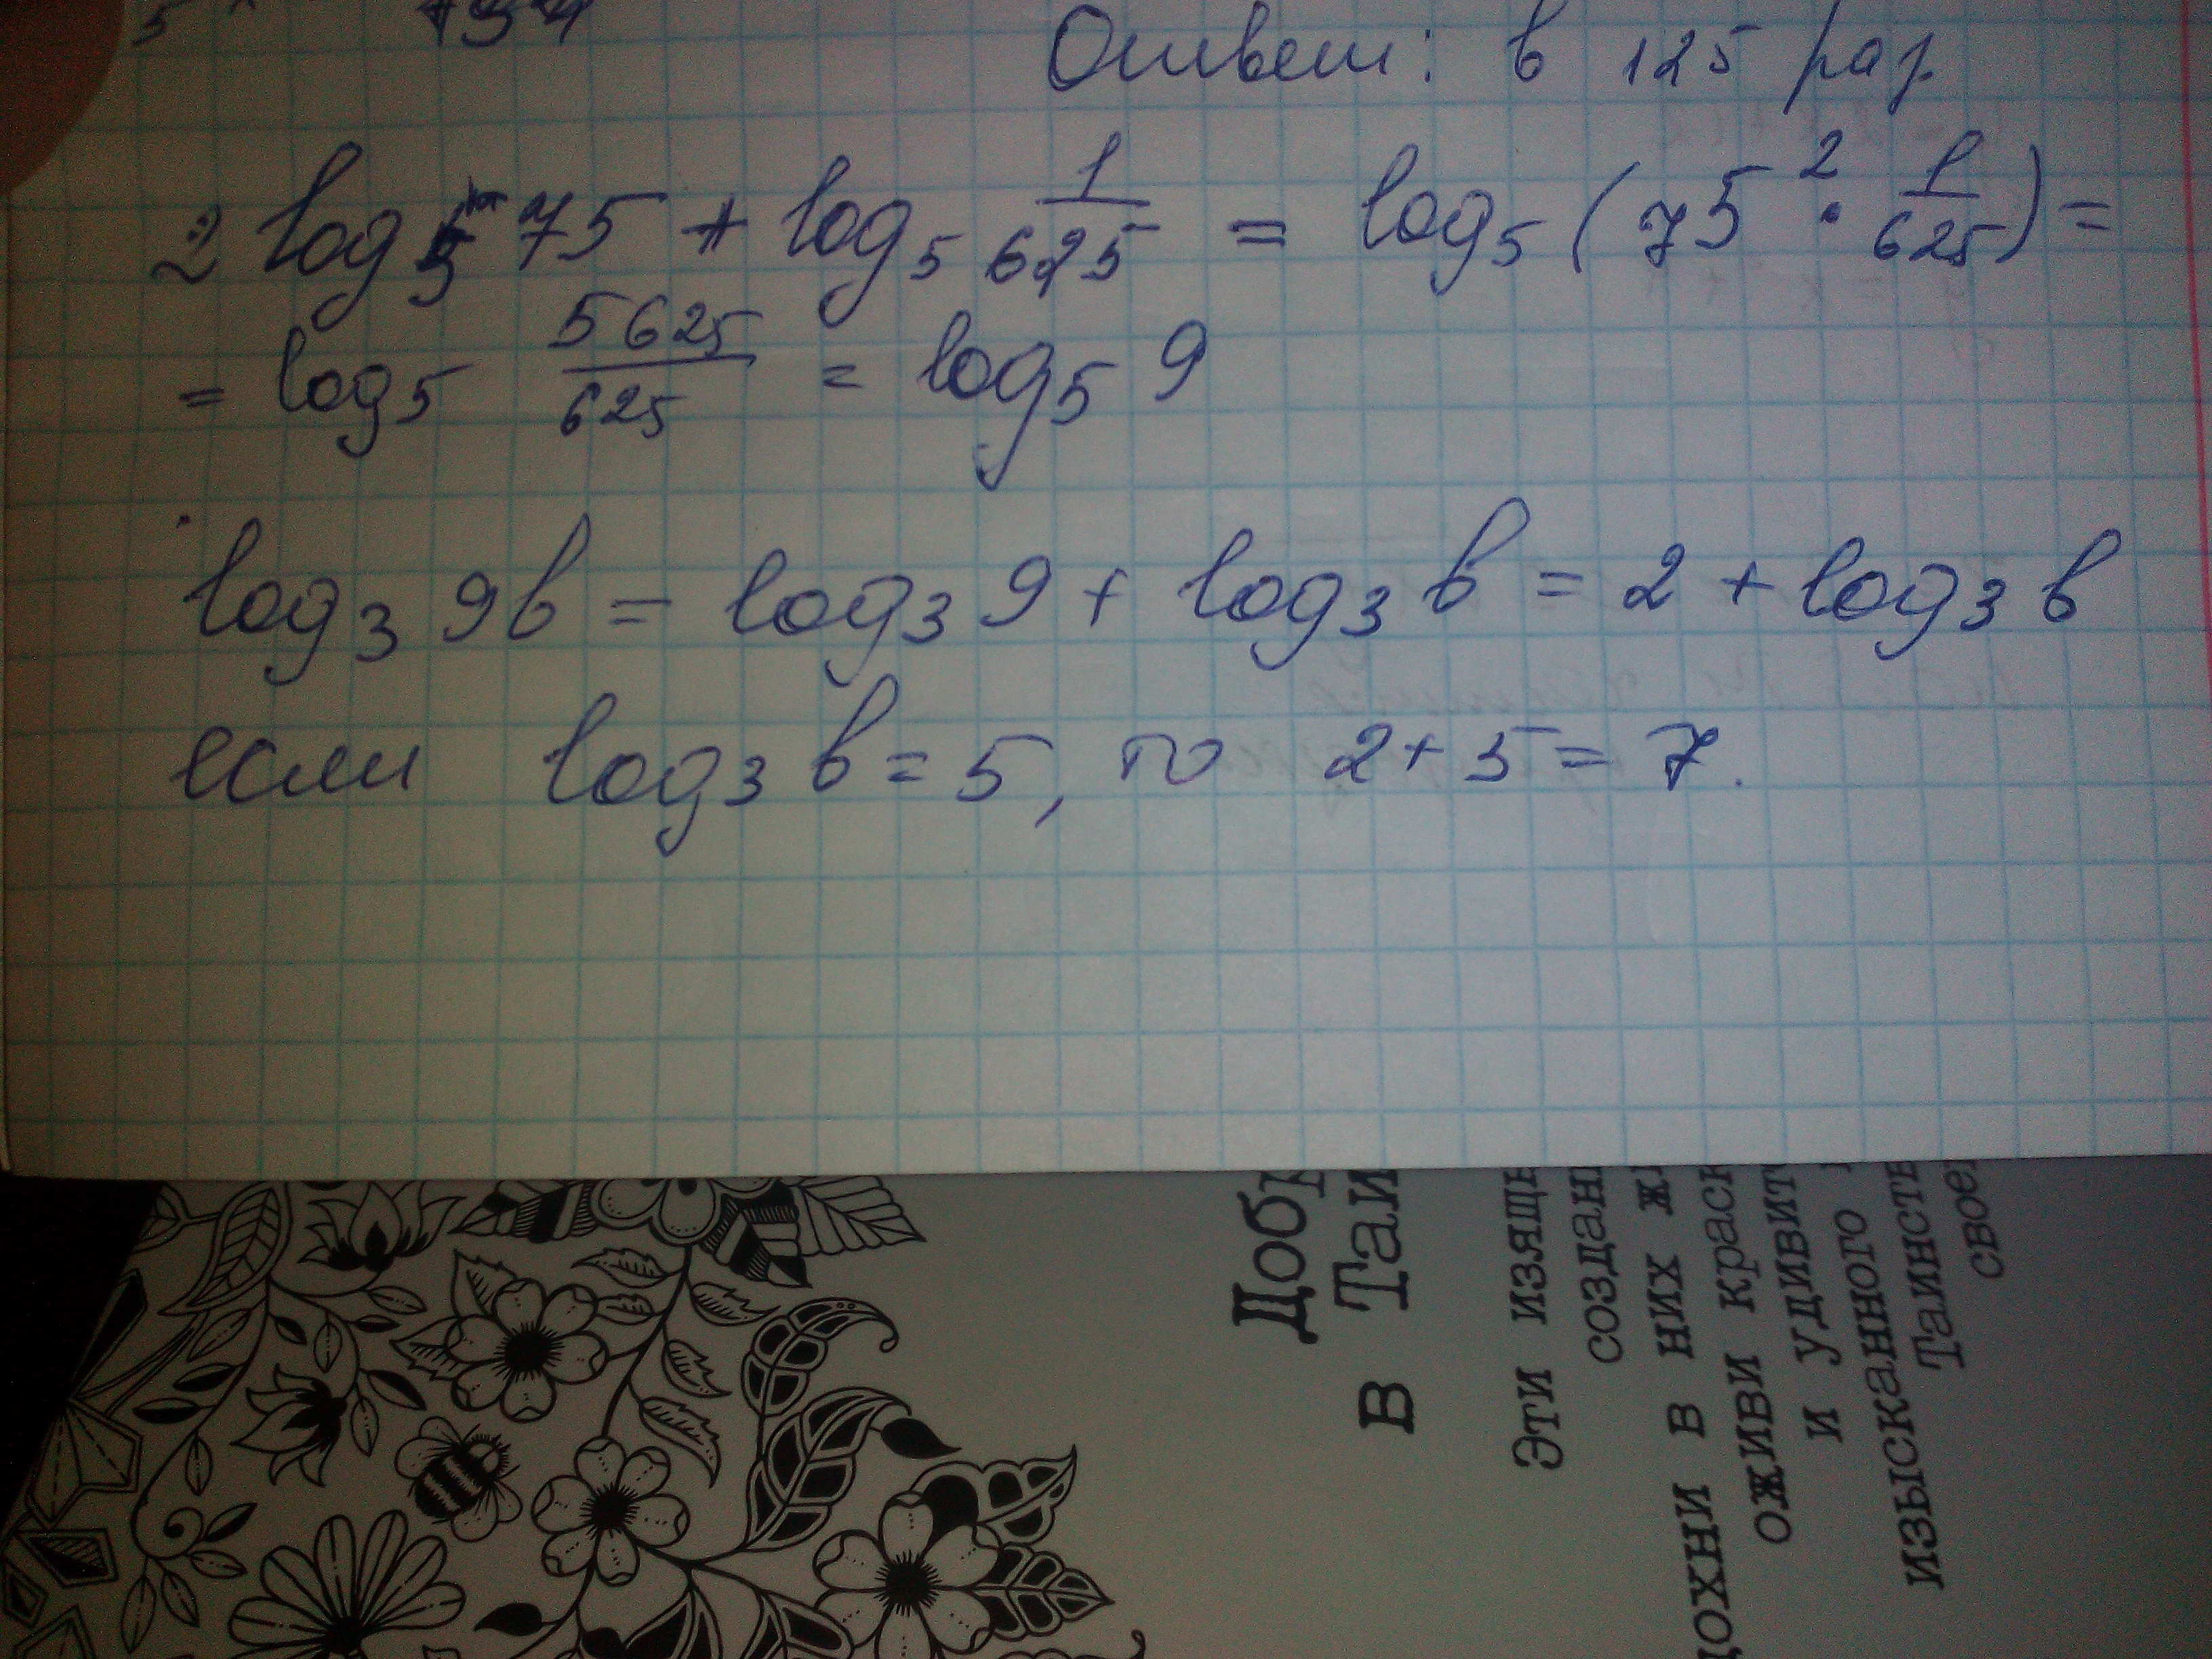 Ответ: в 125 раз.
2 log₅ 75 + log₅ 1/625 = log₅ (75² · 1/625) =
= log₅ 5625/625 = log₅ 9
log₃ 9b = log₃ 9 + log₃ b = 2 + log₃ b
если log₃ b = 5, то 2 + 5 = 7.
в Таи
Эти
создан
в них
оживи
и удивит
изысканного
Таинств
своей